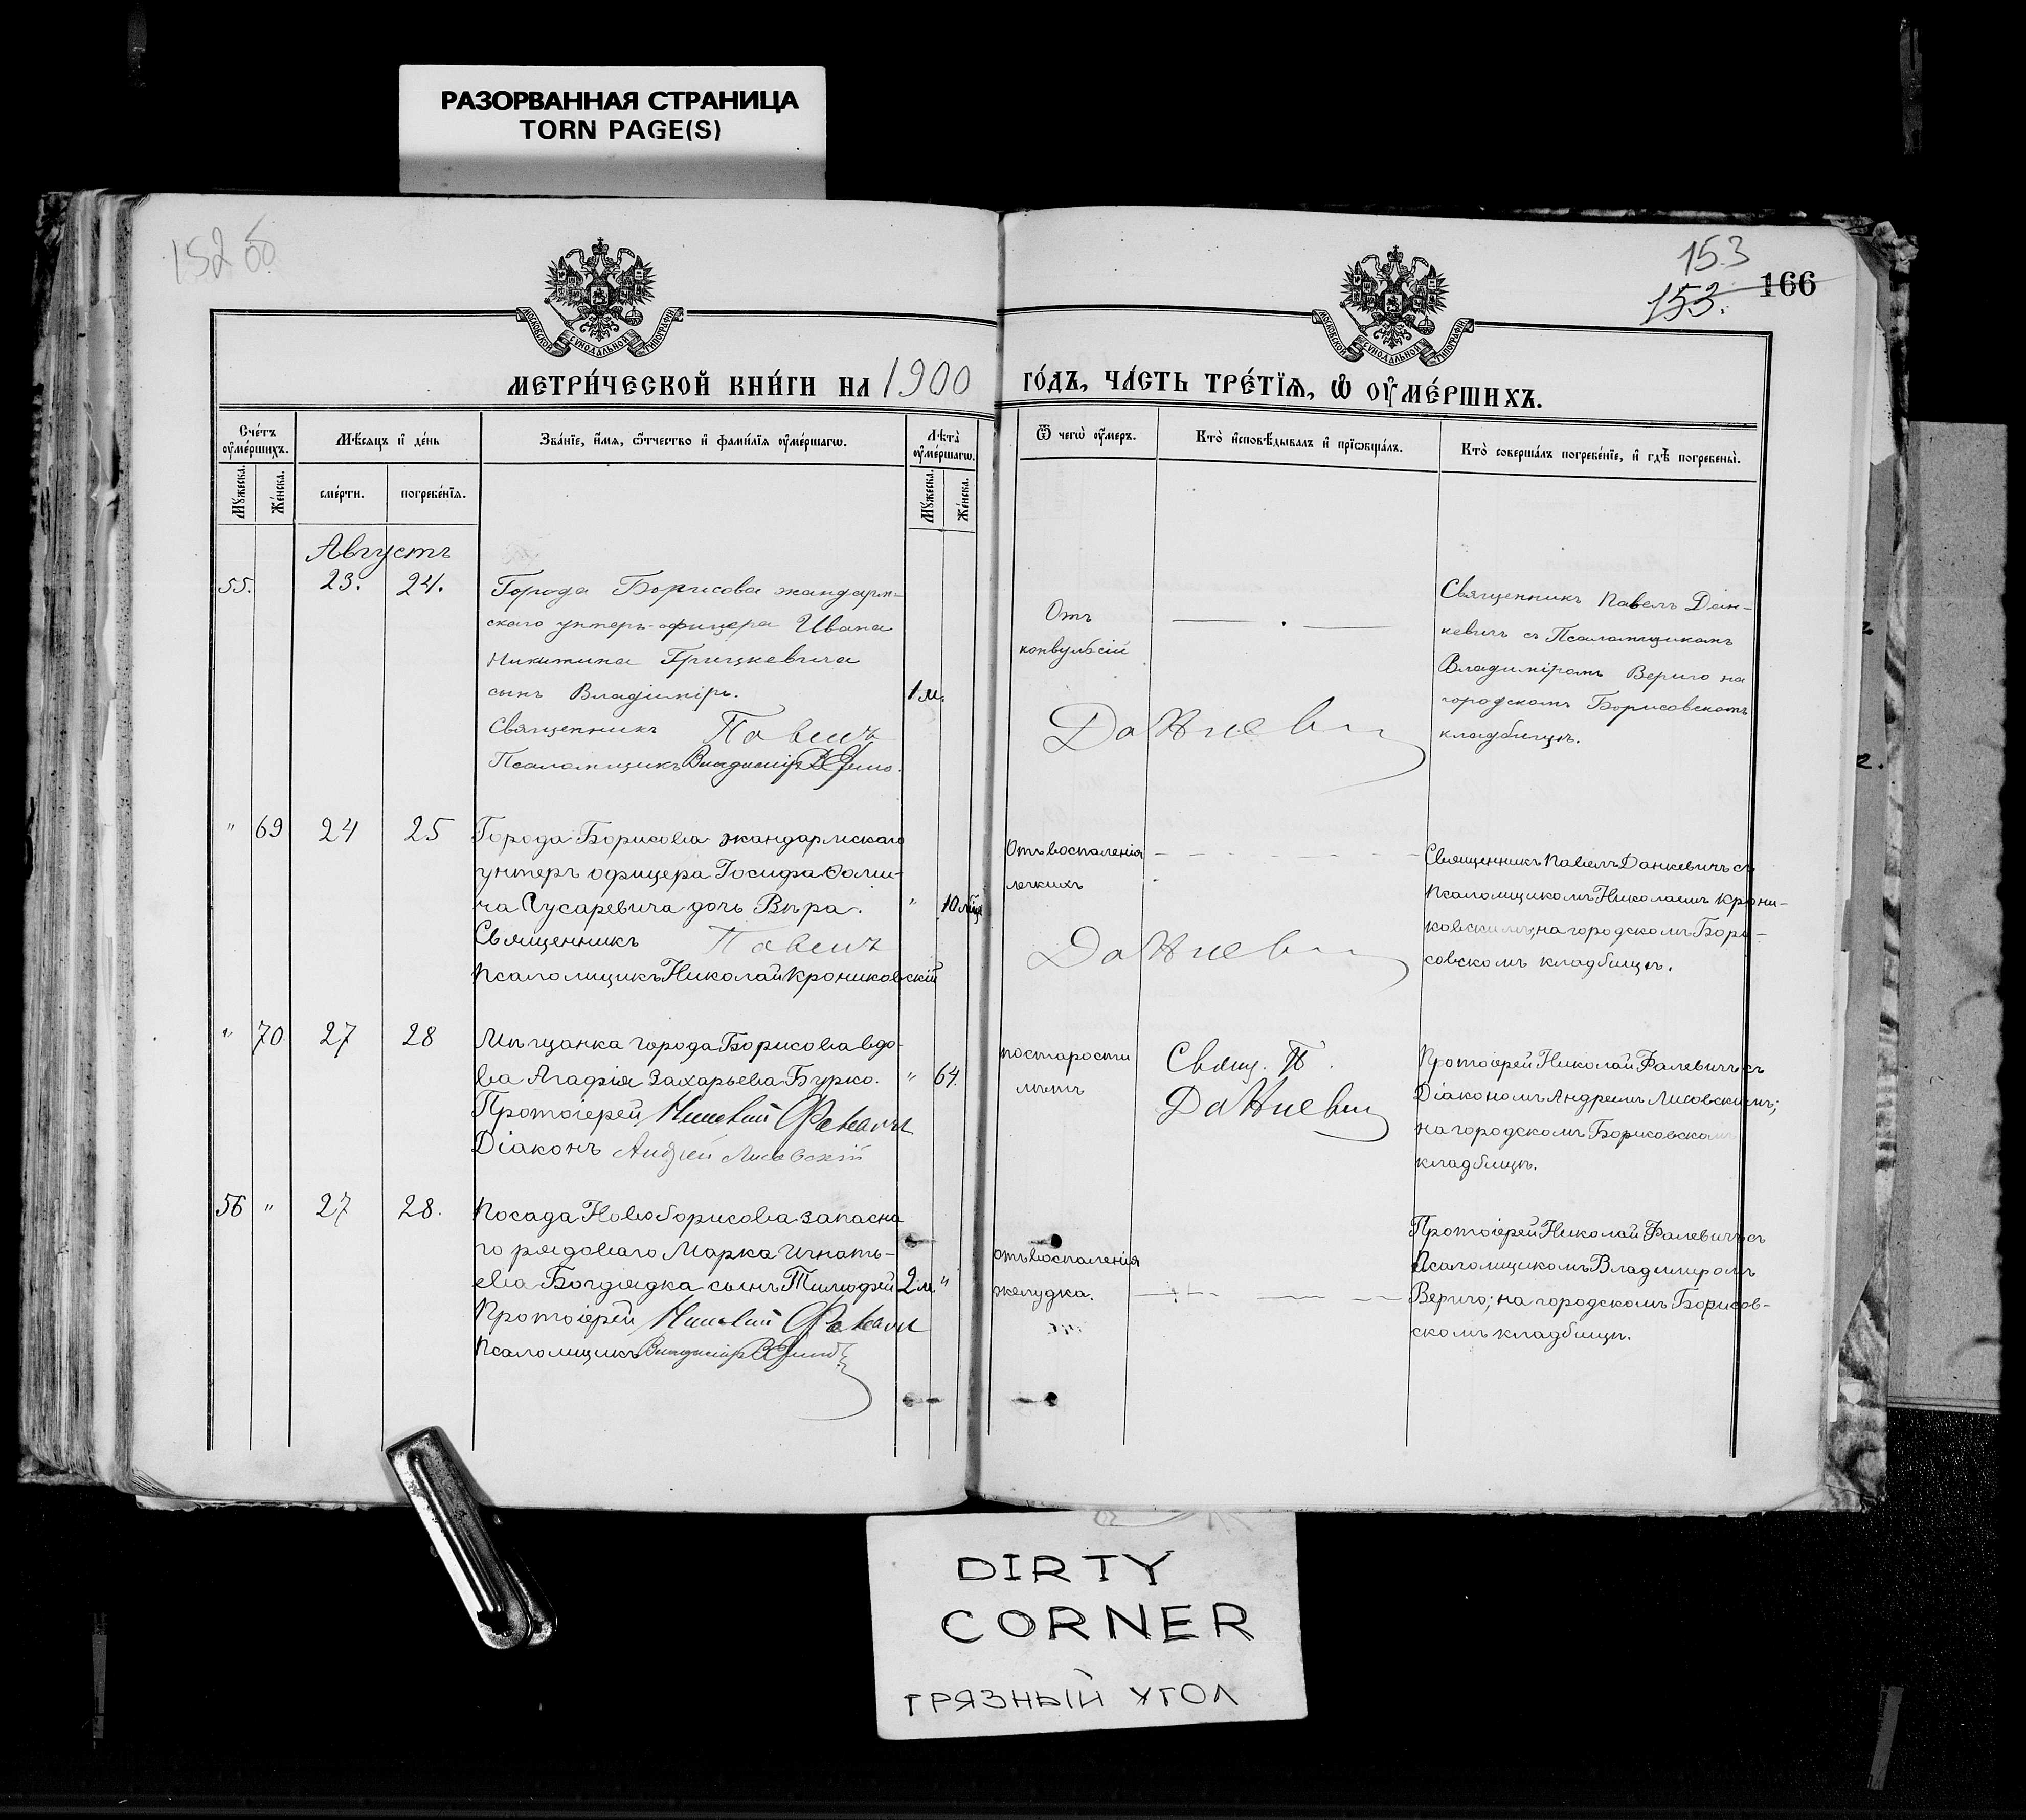 РАЗОРВАННАЯ СТРАНИЦА
TORN PAGE(S)
152 об
153
153.
166
МОСКОВСКОЙ СѴНОДАЛЬНОЙ ТИПОГРАФІИ
МОСКОВСКОЙ СѴНОДАЛЬНОЙ ТИПОГРАФІИ
МЕТРИ́ЧЕСКОЙ КНИ́ГИ НА 1900
ГО́ДЪ, ЧА́СТЬ ТРЕ́ТЇѦ, Ѡ҆ ОУ҆МЕ́РШИХЪ.
Сче́тъ оу҆ме́ршихъ.
Мꙋжеска.
Же́нска.
Мѣ́сѧцъ и҆ де́нь
сме́рти.
погребе́нїѧ.
Зва́нїе, и҆́мѧ, ѻ҆́тчество и҆ фами́лїѧ оу҆ме́ршагѡ.
Лѣ́та̀ оу҆ме́ршагѡ.
Мꙋжеска.
Же́нска.
Ѿ чегѡ̀ оу҆́меръ.
Кто̀ и҆сповѣ́дывалъ и҆ прїѡбща́лъ.
Кто̀ соверша́лъ погребе́нїе, и҆ гдѣ̀ погребены̀.
Августъ
55.
23.
24.
Города Борисова жандарм-
скаго унтеръ-офицера Ивана
Никитина Грицкевича
сынъ Владіміръ.
Священникъ Павелъ
Псаломщикъ Владиміръ Вериго.
1 м.
Отъ
конвульсій
Данкевич
Священникъ Павелъ Дан-
кевичъ съ Псаломщикомъ
Владиміромъ Вериго на
городскомъ Борисовскомъ
кладбищѣ.
" 69
24
25
Города Борисова жандармскаго
унтеръ офицера Іосифа Ѳоми-
ча Сусаревича дочь Вѣра.
Священникъ Павелъ
Псаломщикъ Николай Крониковскій
"
10 мѣс
Отъ воспаленія
легкихъ
Данкевич
Священникъ Павелъ Данкевичъ съ
Псаломщикомъ Николаемъ Крони-
ковскимъ; на городскомъ Бори-
совскомъ кладбищѣ.
" 70
27
28
Мѣщанка города Борисова вдо-
ва Агафія Захарьева Бурко.
Протоіерей Николай Фалевичъ
Діаконъ Андрей Лисовскій
"
64.
по старости
лѣтъ
Свящ. П.
Данкевич
Протоіерей Николай Фалевичъ съ
Діакономъ Андреемъ Лисовскимъ;
на городскомъ Борисовском
кладбищѣ.
56 "
27
28.
Посада Новоборисова запасна
го рядоваго Марка Игнать-
ева Богдядка сынъ Тимофей
Протоіерей Николай Фалевич
Псаломщикъ Владиміръ Вериго
2 м. "
отъ воспаленія
желудка.
Протоіерей Николай Фалевичъ съ
Псаломщикомъ Владимиромъ
Вериго; на городскомъ Борисов-
скомъ кладбищѣ.
DIRTY
CORNER
ГРЯЗНЫЙ УГОЛ